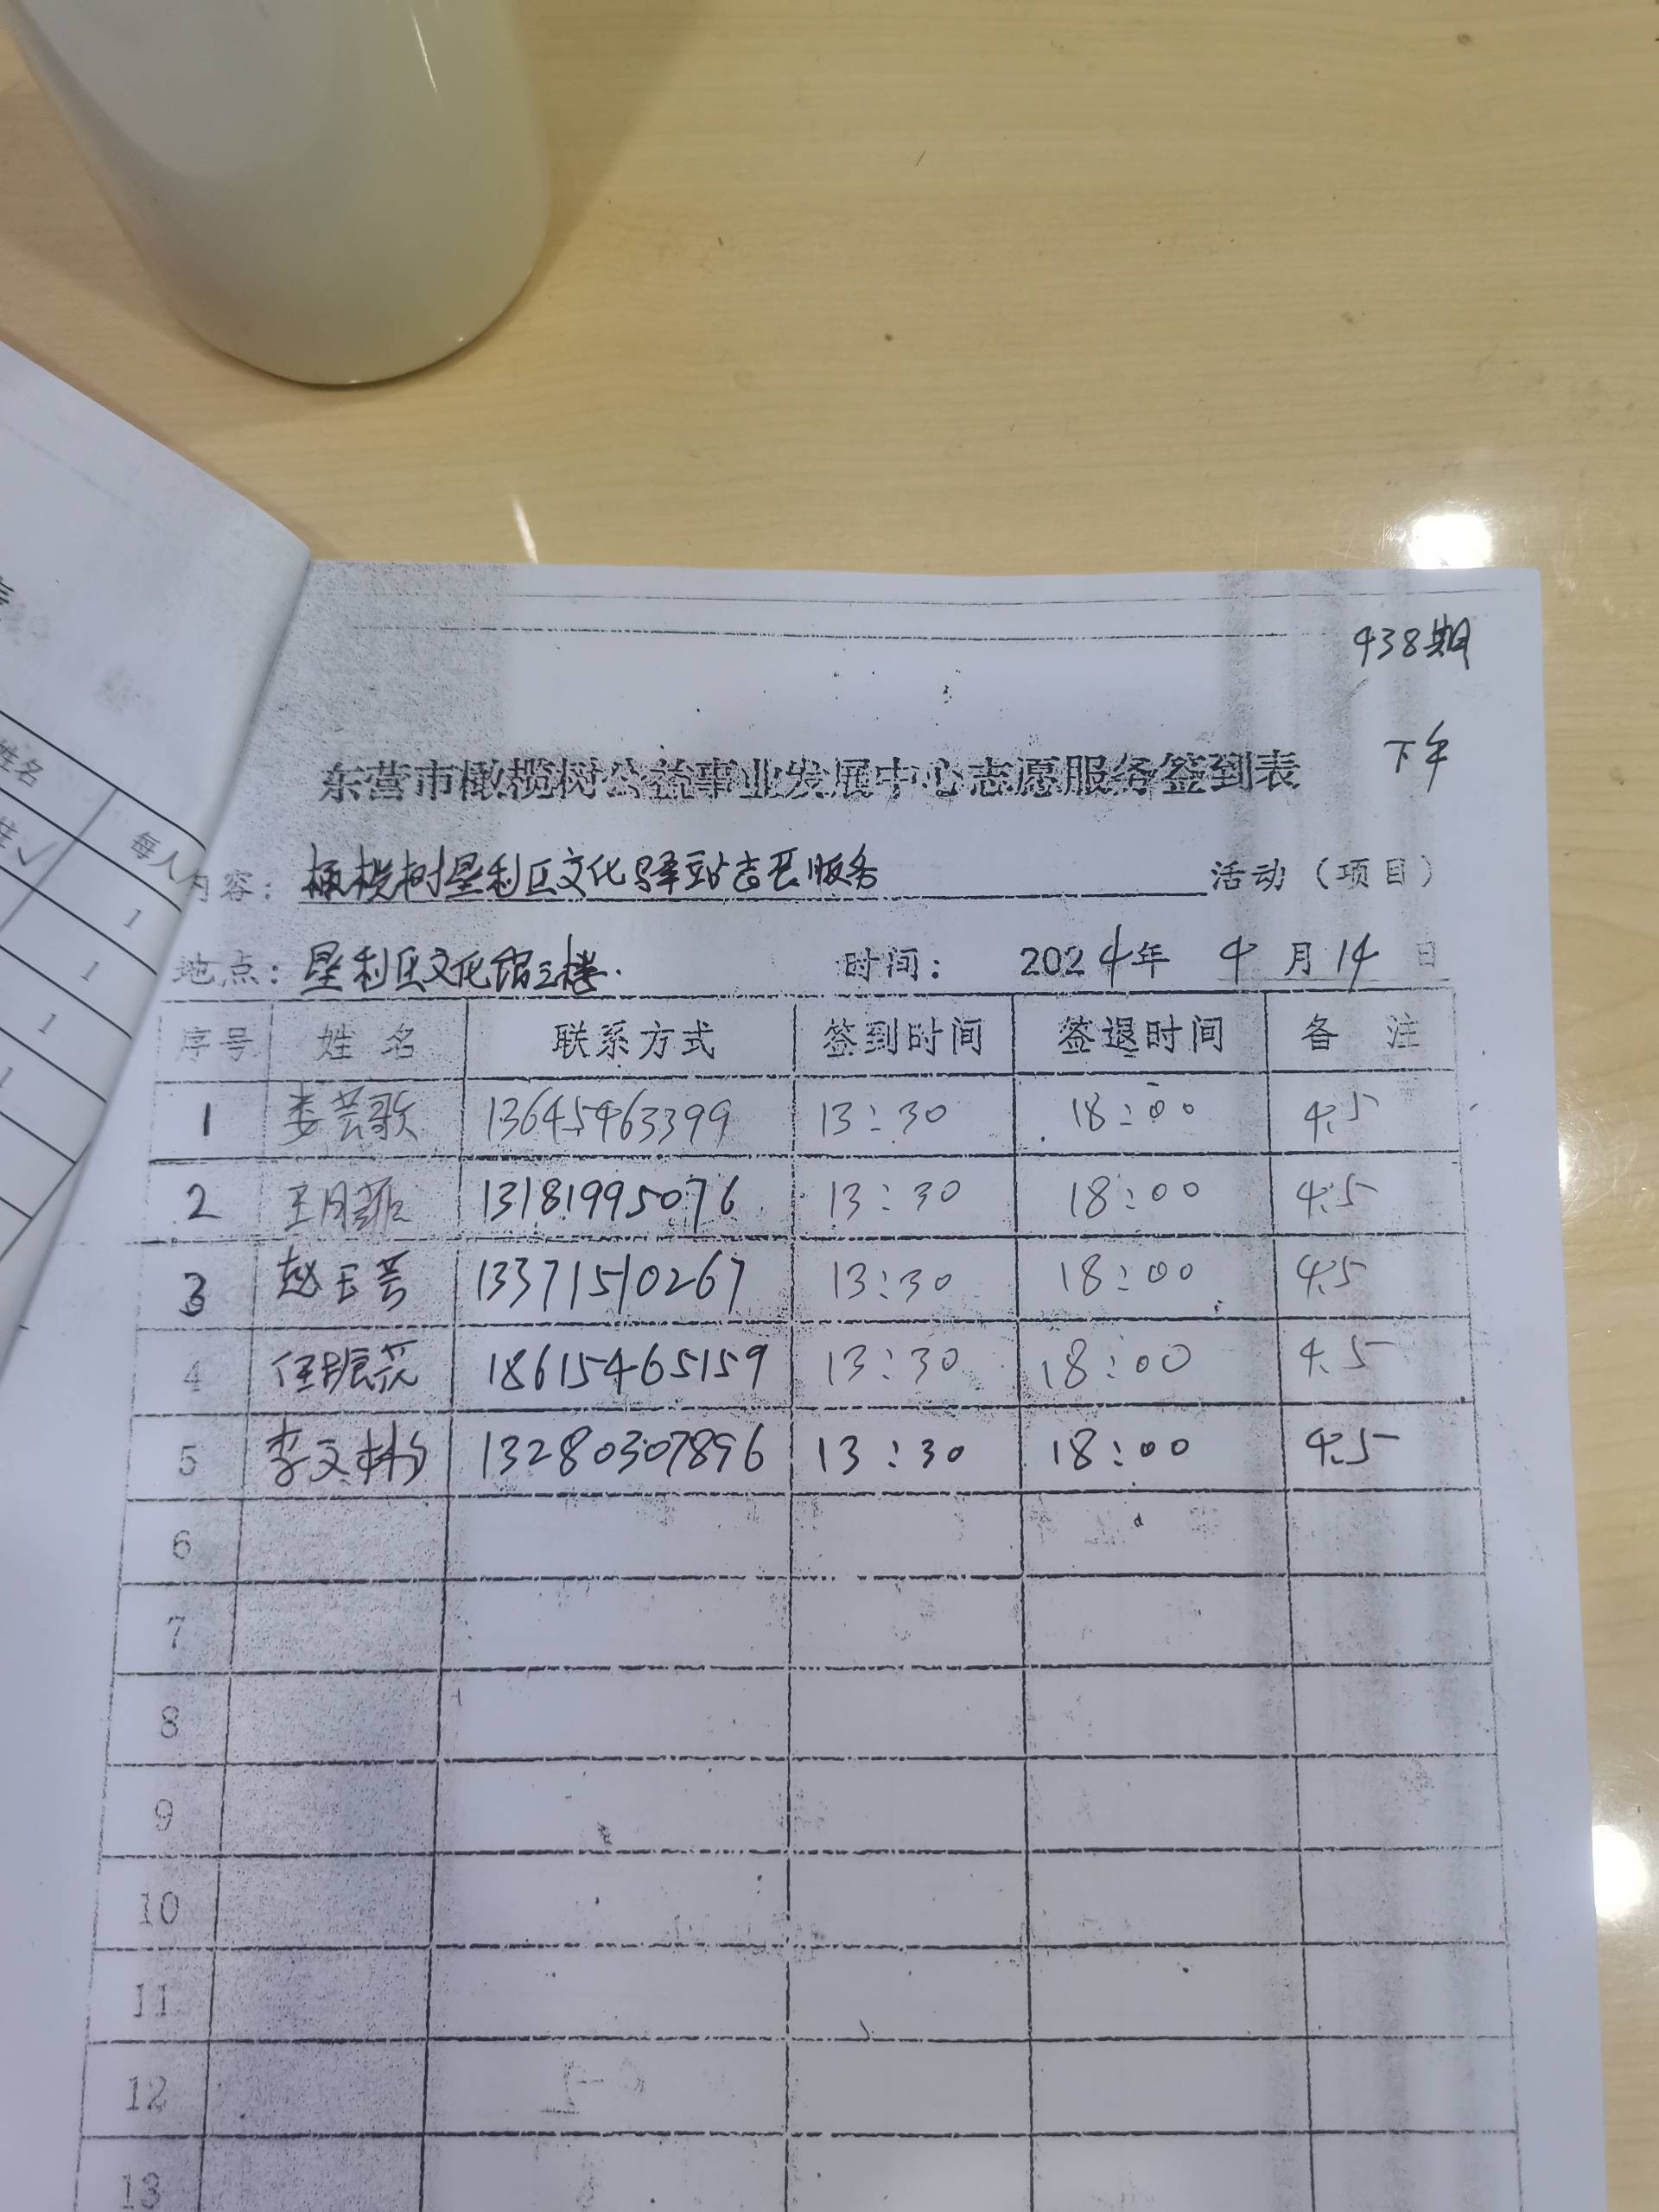 438期
下午
东营市橄榄树公益事业发展中心志愿服务签到表
内容： 橄榄树垦利区文化驿站 服务 活动（项目）
地点： 垦利区文化馆三楼. 时间： 2024年 4月14日
序号 姓名 联系方式 签到时间 签退时间 备注
1 娄芸歌 13645463399 13:30 18:00 4.5
2 13181995076 13:30 18:00 4.5
3 赵玉芳 13371510267 13:30 18:00 4.5
4 任振花 18615465159 13:30 18:00 4.5
5 李文 13280307896 13:30 18:00 4.5
6
7
8
9
10
11
12
13
姓名
每人
1
1
1
1